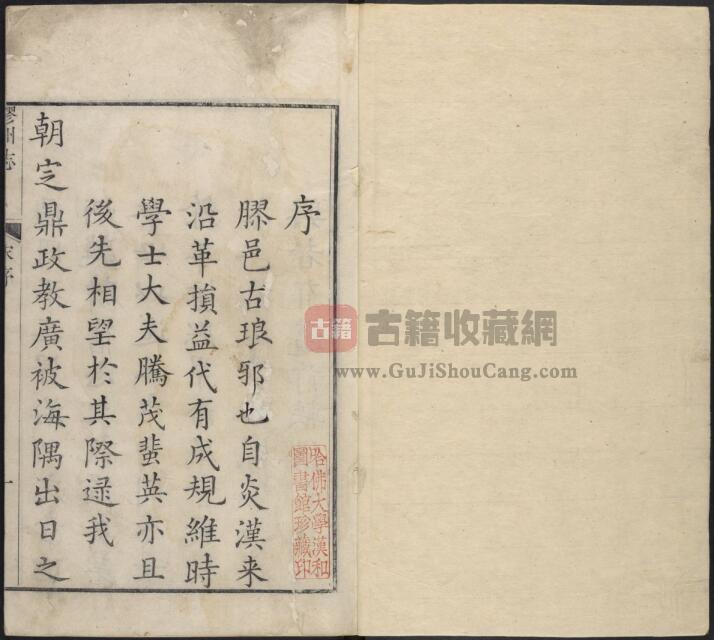 序
膠邑古琅邪也自炎漢来
沿革損益代有成規維時
學士大夫騰茂蜚英亦且
後先相望於其際逯我
朝定鼎政教廣被海隅出日之
膠州志
序
一
哈佛大學漢和
圖書館珍藏印
古籍
古籍收藏網
www.GuJiShouCang.com